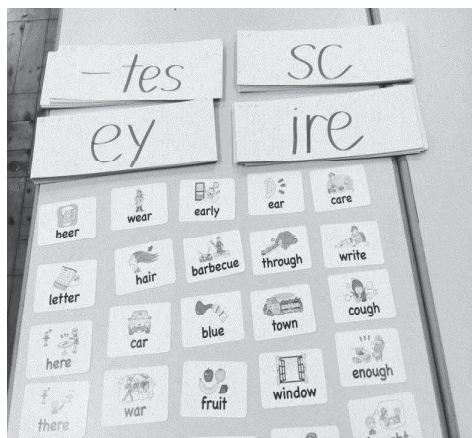 -tes sc
ey ire
beer wear early ear care
letter hair barbecue through write
here car blue town cough
there war fruit window enough